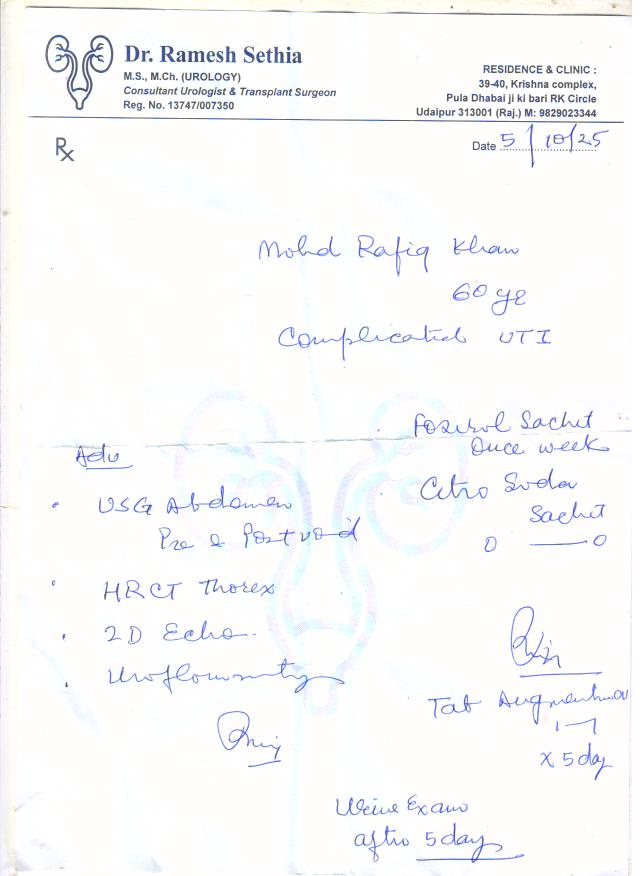 Dr. Ramesh Sethia
M.S., M.Ch. (UROLOGY)
Consultant Urologist & Transplant Surgeon
Reg. No. 13747/007350
RESIDENCE & CLINIC :
39-40, Krishna complex,
Pula Dhabai ji ki bari RK Circle
Udaipur 313001 (Raj.) M: 9829023344
Date 5/10/25
Rx
Mohd Rafiq Khan
60 yr
Complicated UTI
Adv
• USG Abdomen
Pre & Post void
• HRCT Thorex
• 2D Echo.
• Uroflowmetry
Sachet
Once week
Citro Soda
Sachet
0 — 0
Tab Augmentin
1-1
x 5 day
Urine Exam
after 5 day